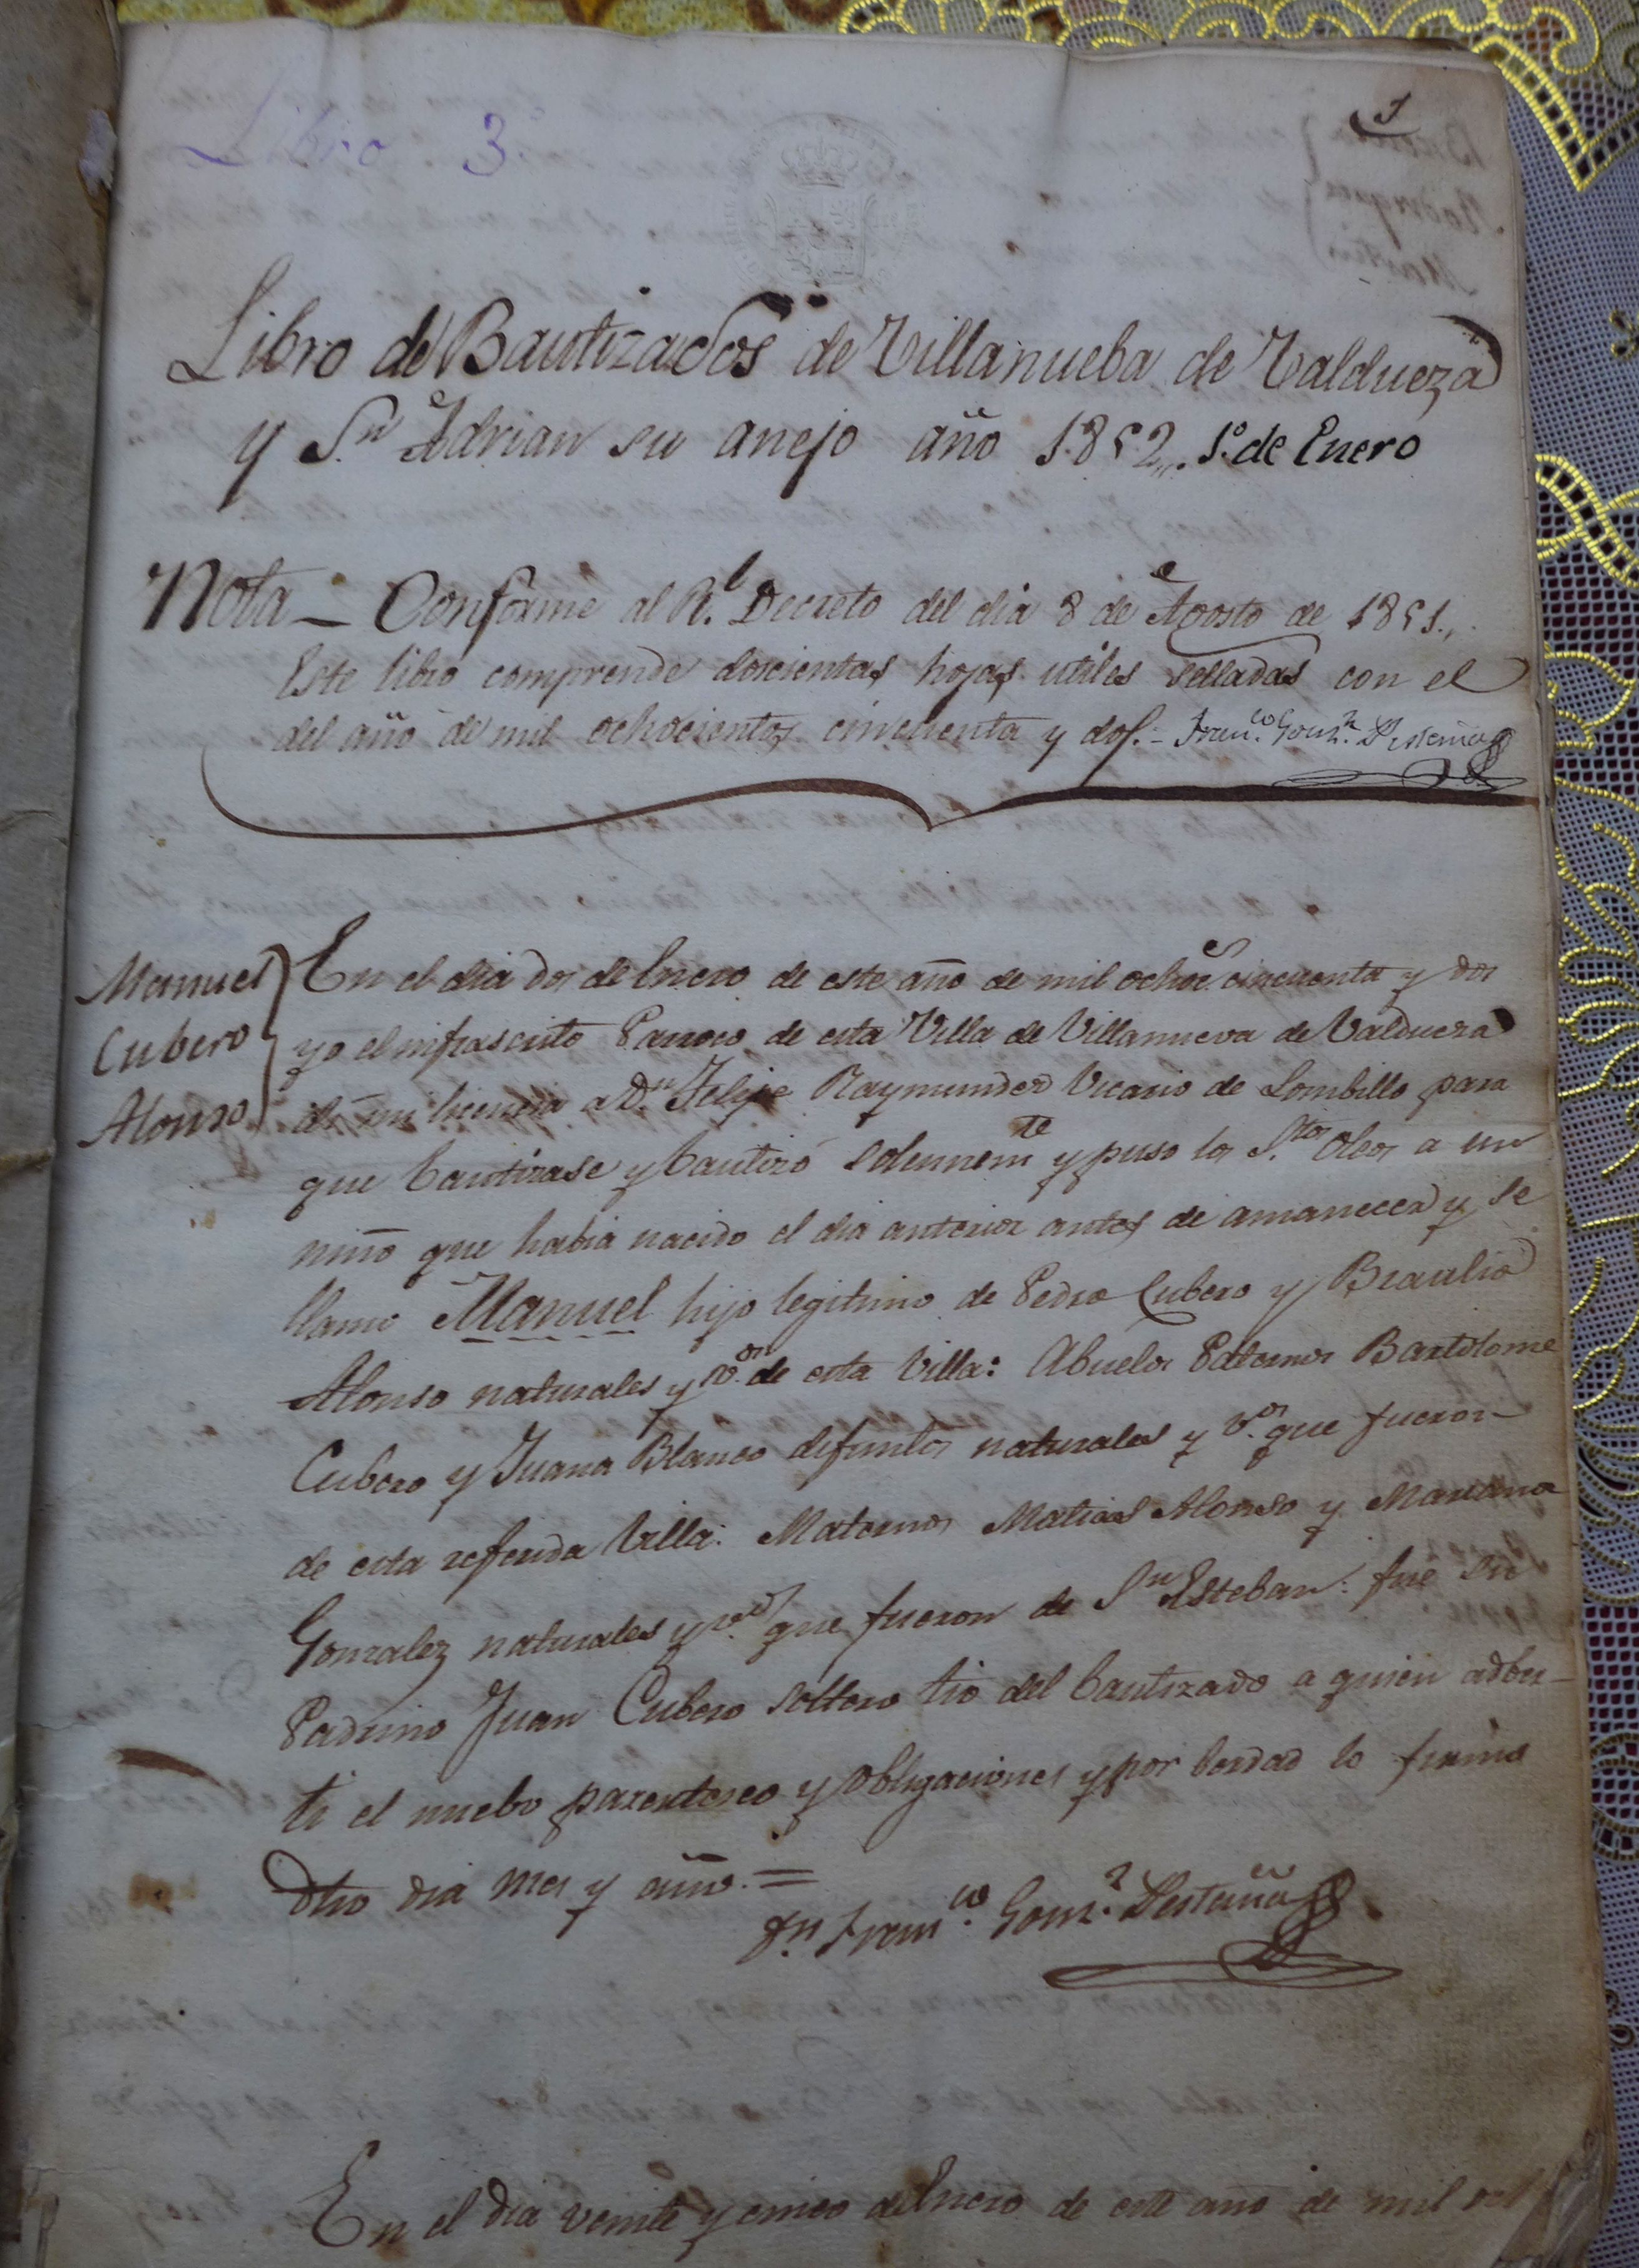 1
Libro 3º
Libro de Bautizados de Villanueba de Valdueza
y Sn. Adrian su anejo año 1852,,. 1º. de Enero
Nota - Conforme al Rl. Decreto del dia 8 de Agosto de 1851.,
Este libro comprende doscientas hojas utiles selladas con el
del año de mil ochocientos cincuenta y dos. - Franco. Gonz.
Manuel
Cubero
Alonso
En el dia dos de Enero de este año de mil ochos. cincuenta y dos
yo el infrascrito Parroco de esta Villa de Villanueva de Valdueza
di mi licencia a Dn. Felipe Raymundez Vicario de Lombillo para
que bautizase y bautizó solemnemte y puso los Stos. Oleos a un
niño que habia nacido el dia anterior antes de amanecer y se
llamo Manuel hijo legitimo de Pedro Cubero y Braulia
Alonso naturales y vos. de esta Villa: Abuelos Paternos Bartolome
Cubero y Juana Blanco difuntos naturales y vos. que fueron
de esta referida Villa: Maternos Matias Alonso y Mariana
Gonzalez naturales y vos. que fueron de Sn Esteban: fue su
Padrino Juan Cubero soltero tio del bautizado a quien adber-
ti el nuebo parentesco y obligaciones y por berdad lo firmo
dho dia mes y año. =
Dn. Franco. Gonz.
En el dia veinte y cinco de Enero de este año de mil